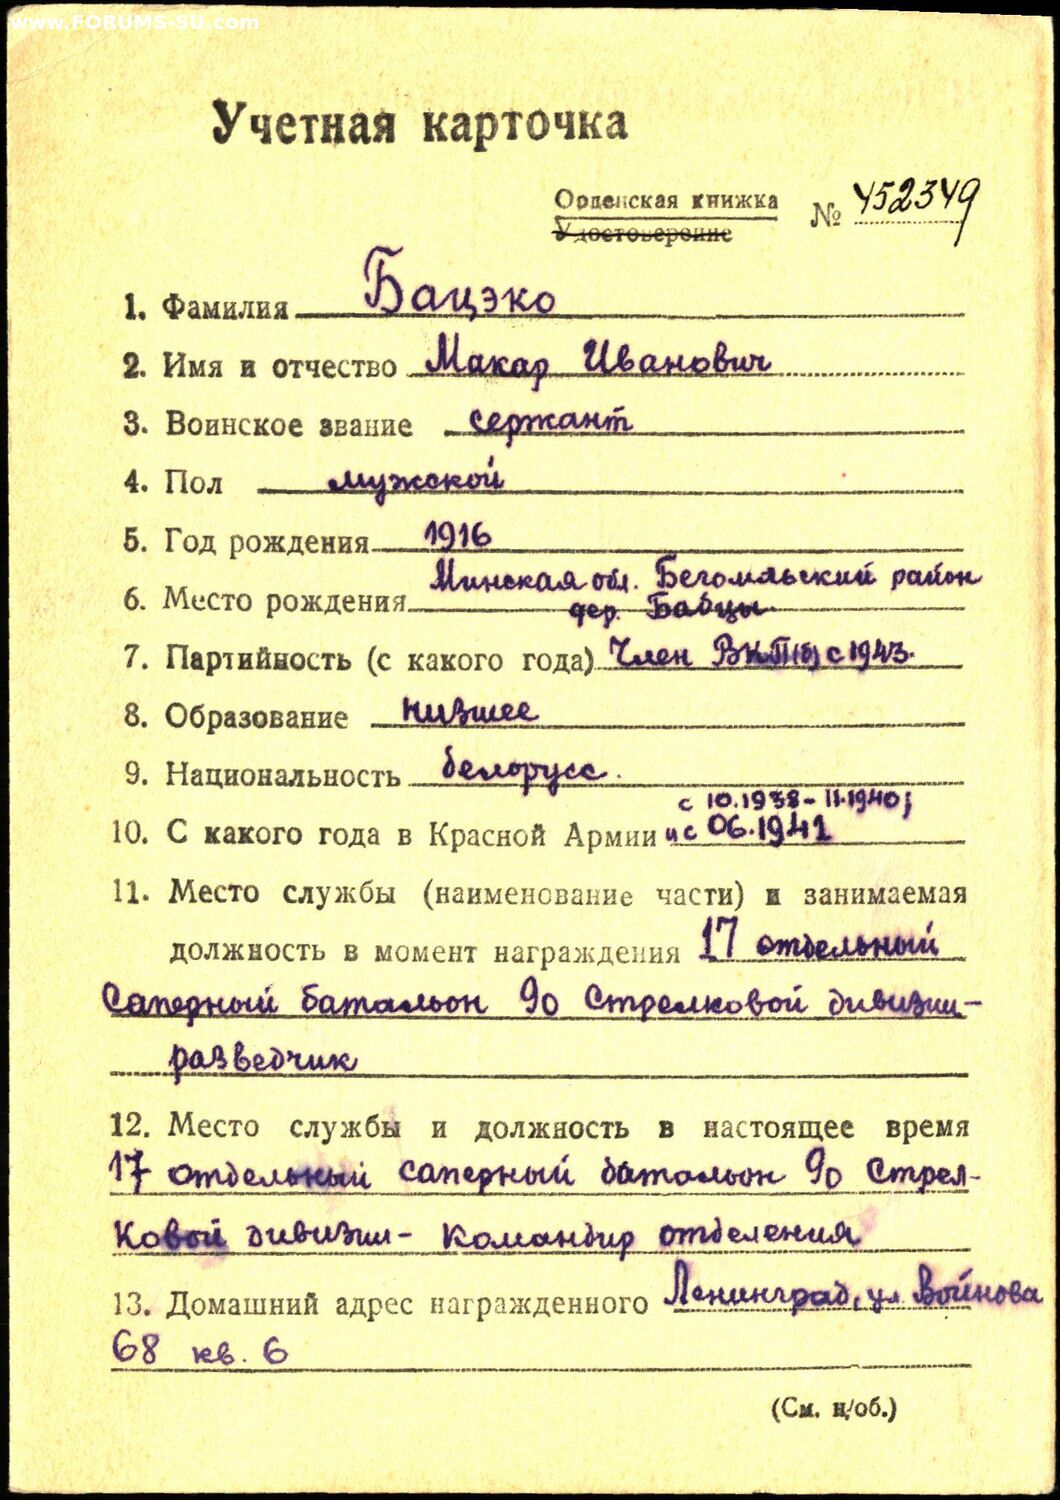 www.FORUMS-SU.com
Учетная карточка
Орденская книжка № 452349
Удостоверение
1. Фамилия Бацэко
2. Имя и отчество Макар Иванович
3. Воинское звание сержант
4. Пол мужской
5. Год рождения 1916
Минская обл. Бегомльский район
6. Место рождения дер. Бабцы
7. Партийность (с какого года) Член ВКП(б) с 1943.
8. Образование низшее
9. Национальность белорусс.
с 10.1938 - 11.1940;
10. С какого года в Красной Армии и с 06.1941
11. Место службы (наименование части) и занимаемая
должность в момент награждения 17 отдельный
Саперный батальон 90 Стрелковой дивизии-
разведчик
12. Место службы и должность в настоящее время
17 отдельный саперный батальон 90 Стрел-
ковой дивизии - командир отделения
13. Домашний адрес награжденного Ленинград, ул Войнова
68 кв. 6
(См. н/об.)